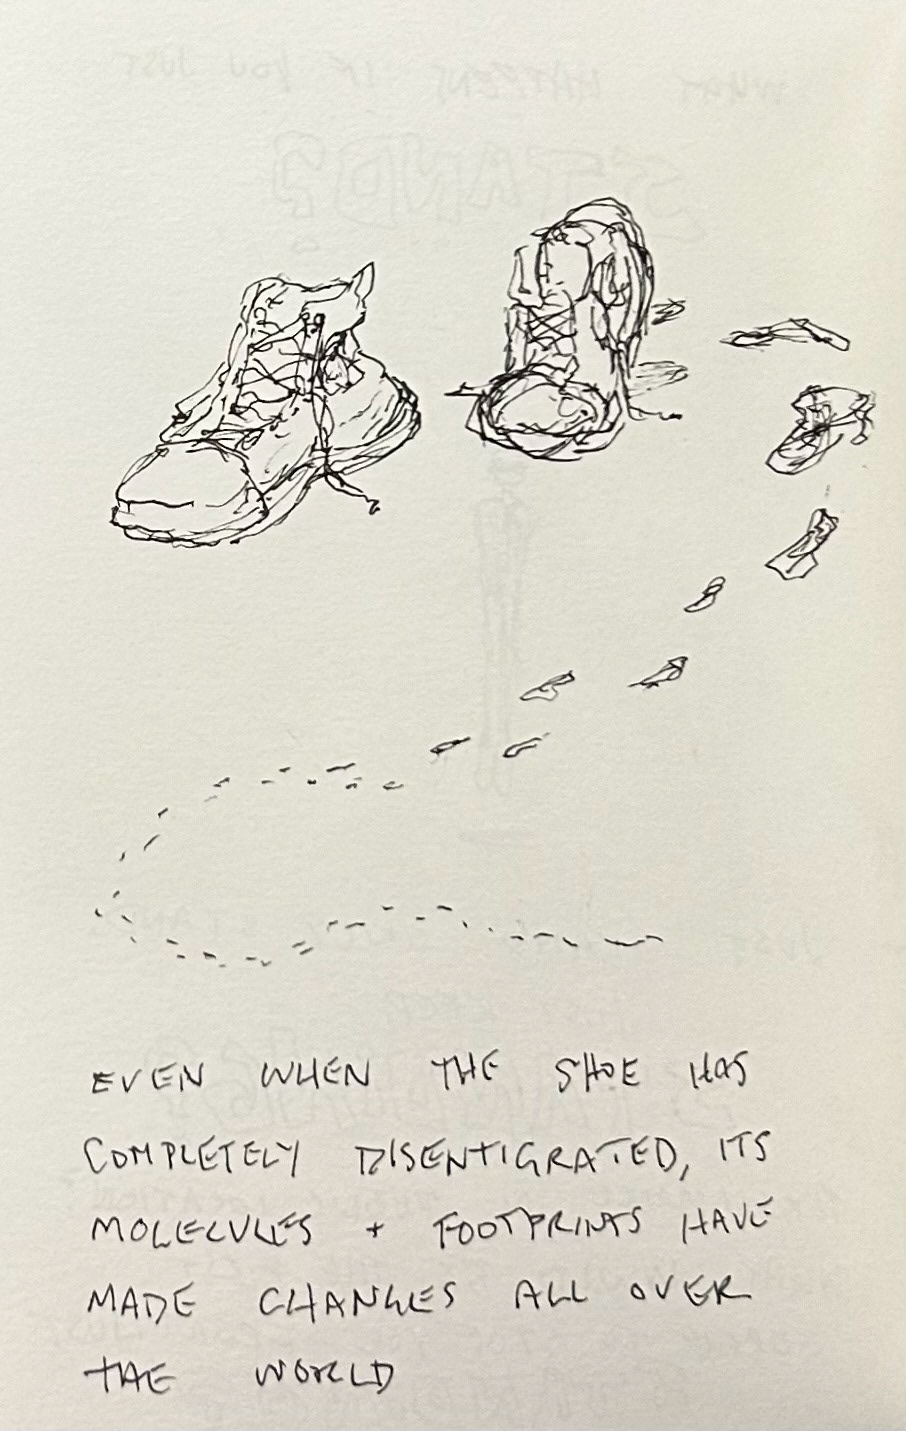 EVEN WHEN THE SHOE HAS
COMPLETELY DISENTIGRATED, ITS
MOLECULES + FOOTPRINTS HAVE
MADE CHANGES ALL OVER
THE WORLD